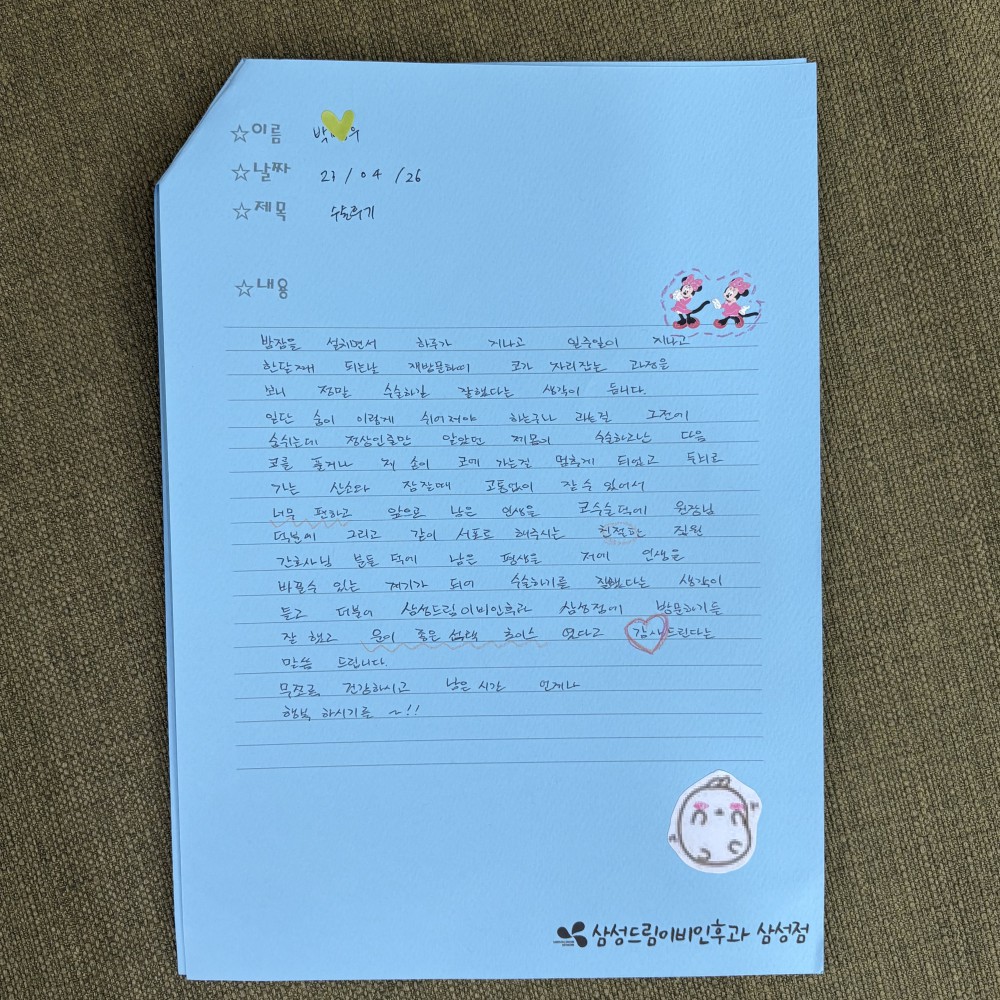 ☆이름 박 우
☆날짜 23 / 04 / 26
☆제목 수술후기
☆내용
밤잠을 설치면서 하루가 지나고 일주일이 지나고
한달째 되는날 재방문하여 코가 자리잡는 과정을
보니 정말 수술하길 잘했다는 생각이 듭니다.
일단 숨이 이렇게 쉬어져야 하는구나 라는걸 그전에
숨쉬는데 정상인줄만 알았던 제몸이 수술하고난 다음
코를 풀거나 제 손이 코에 가는걸 멈추게 되었고 뇌로
가는 산소와 잠잘때 고통없이 잘 수 있어서
너무 편하고 앞으로 남은 인생을 코수술덕에 원장님
덕분에 그리고 같이 서포트 해주시는 친절한 직원
간호사님 분들 덕에 남은 평생을 저에 인생을
바꿀수 있는 계기가 되어 수술하기를 잘했다는 생각이
들고 더불어 삼성드림이비인후과 삼성점에 방문하기를
잘 했고 운이 좋은 선택 초이스 였다고 감사드린다는
말씀 드립니다.
무조록 건강하시고 남은 시간 언제나
행복 하시기를 ~!!
삼성드림이비인후과 삼성점